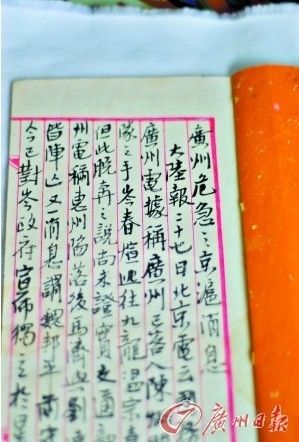 廣州危急之京滬消息
大陸報二十七日北京電云
廣州電據稱廣州已落入陳
隊之手岑春煊逃往九龍溫宗
但此晚奔之說尚未證實交通
州電稱惠州陷落後馬濟與劉
皆陣亡又消息謂魏邦平
今已對岑政府宣佈獨立於是
廣州日報